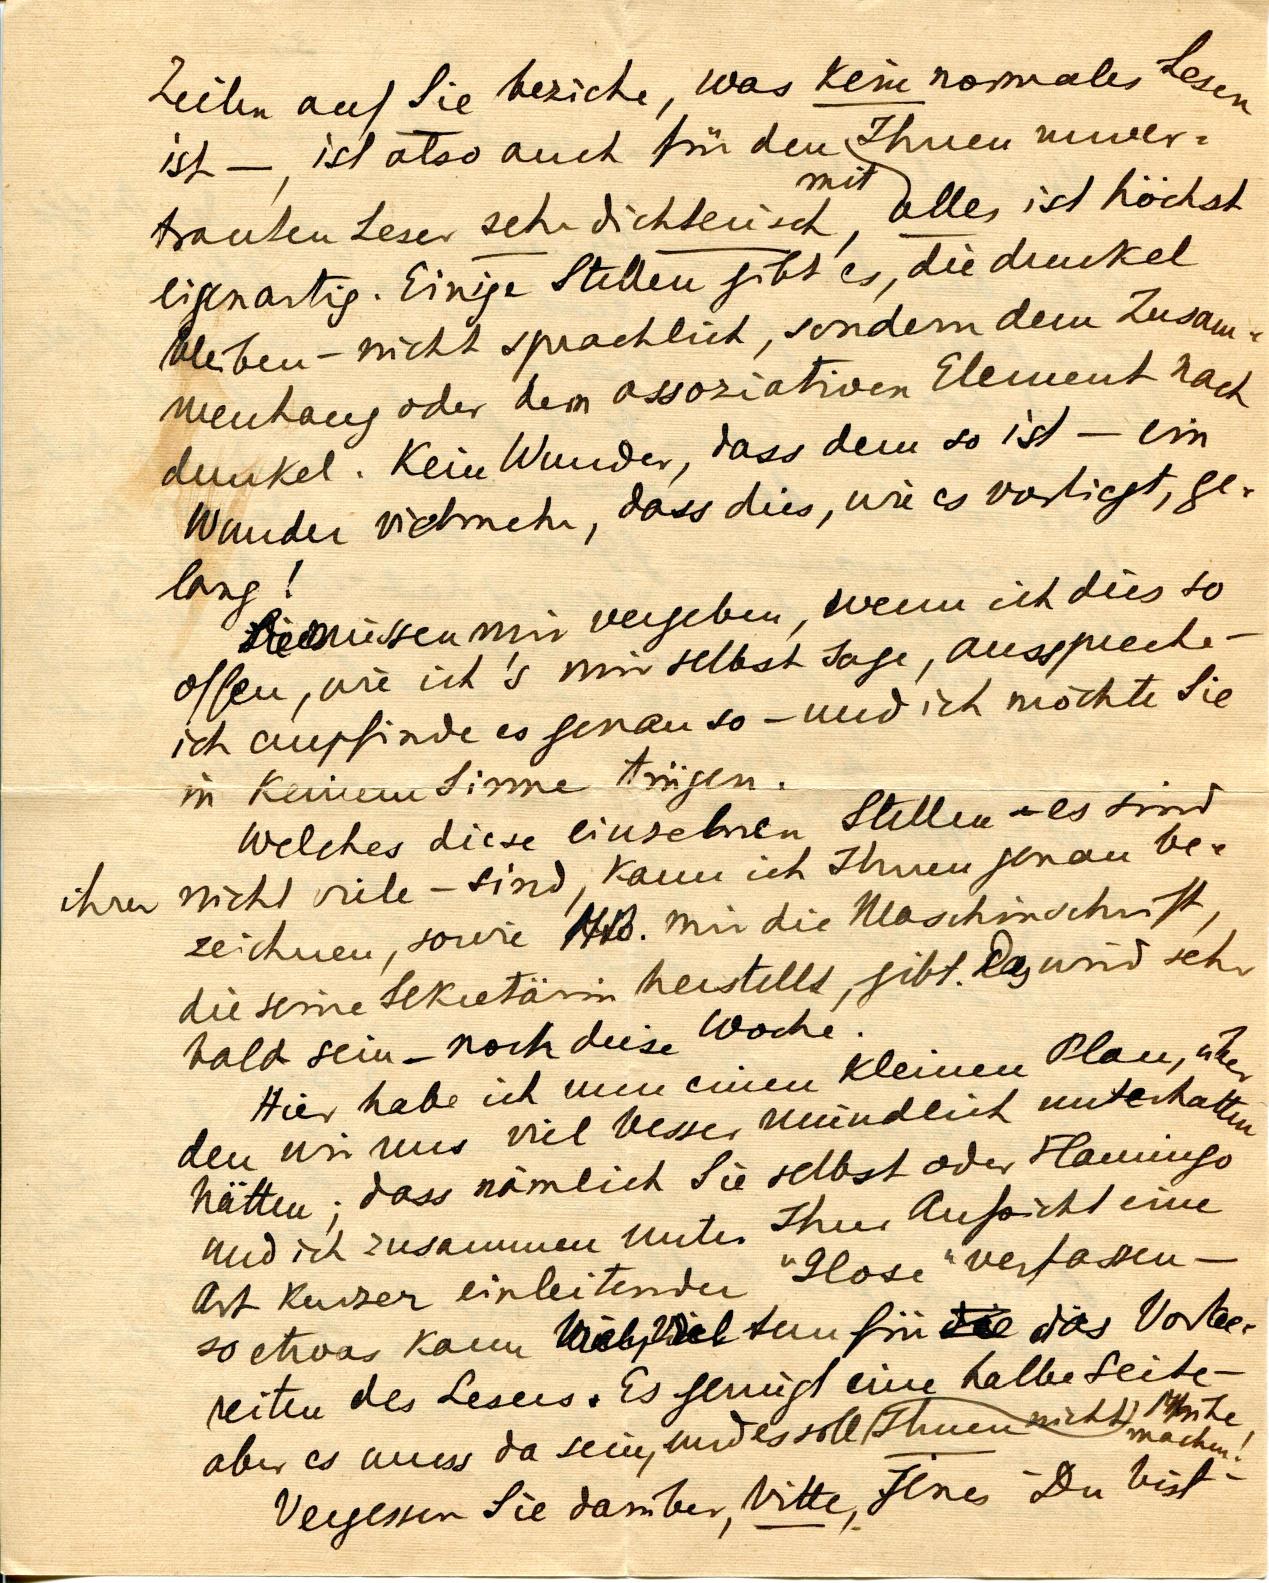 Zeilen auf Sie beziehe, was kein normales Lesen
ist —, ist also auch für den Ihnen unver-
mit
trauten Leser sehr dichterisch, alles ist höchst
eigenartig. Einige Stellen gibt es, die dunkel
bleiben – nicht sprachlich, sondern dem Zusam-
menhang oder dem assoziativen Element nach
dunkel. Kein Wunder, dass dem so ist – ein
Wunder vielmehr, dass dies, wie es vorliegt, ge-
lang!
Sie müssen mir vergeben, wenn ich dies so
offen, wie ich's mir selbst sage, ausspreche –
ich empfinde es genau so – und ich möchte Sie
in keinem Sinne trügen.
Welches diese einzelnen Stellen – es sind
ihrer nicht viele – sind, kann ich Ihnen genau be-
zeichnen, sowie HB. mir die Maschinschrift,
die seine Sekretärin herstellt, gibt. Das wird sehr
bald sein – noch diese Woche.
Hier habe ich nun einen kleinen Plan, über
den wir uns viel besser mündlich unterhalten
hätten; dass nämlich Sie selbst oder Flamingo
und ich zusammen unter Ihrer Aufsicht eine
Art kurzer einleitender "Glose" verfassen –
so etwas kann viel, viel tun für die das Vorbe-
reiten des Lesers. Es genügt eine halbe Seite –
aber es muss da sein, und es soll Ihnen nicht Mühe
machen!
Vergessen Sie darüber, bitte, jenes "Du bist –